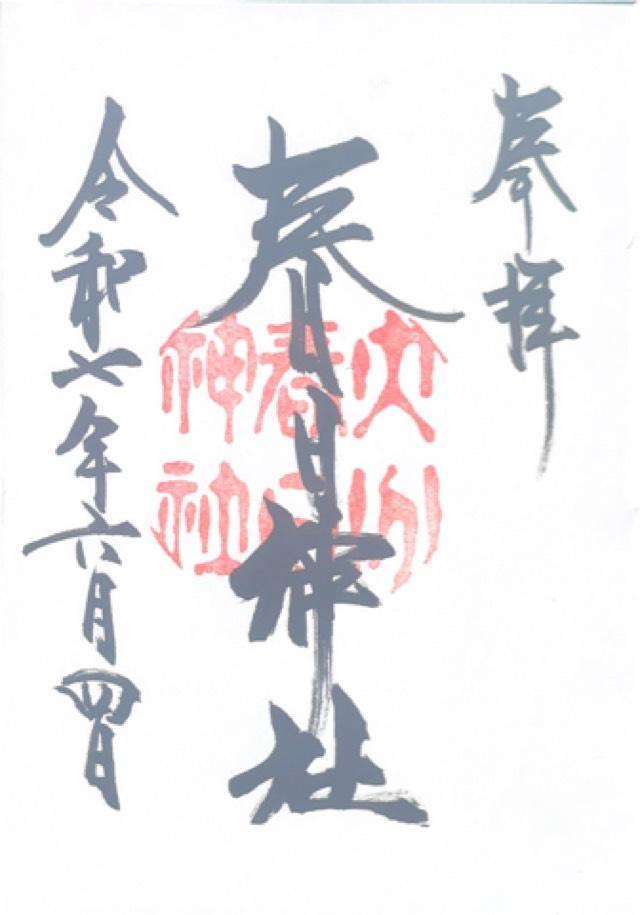 奉拝
春日神社
大分
春日
神社
令和七年六月四日